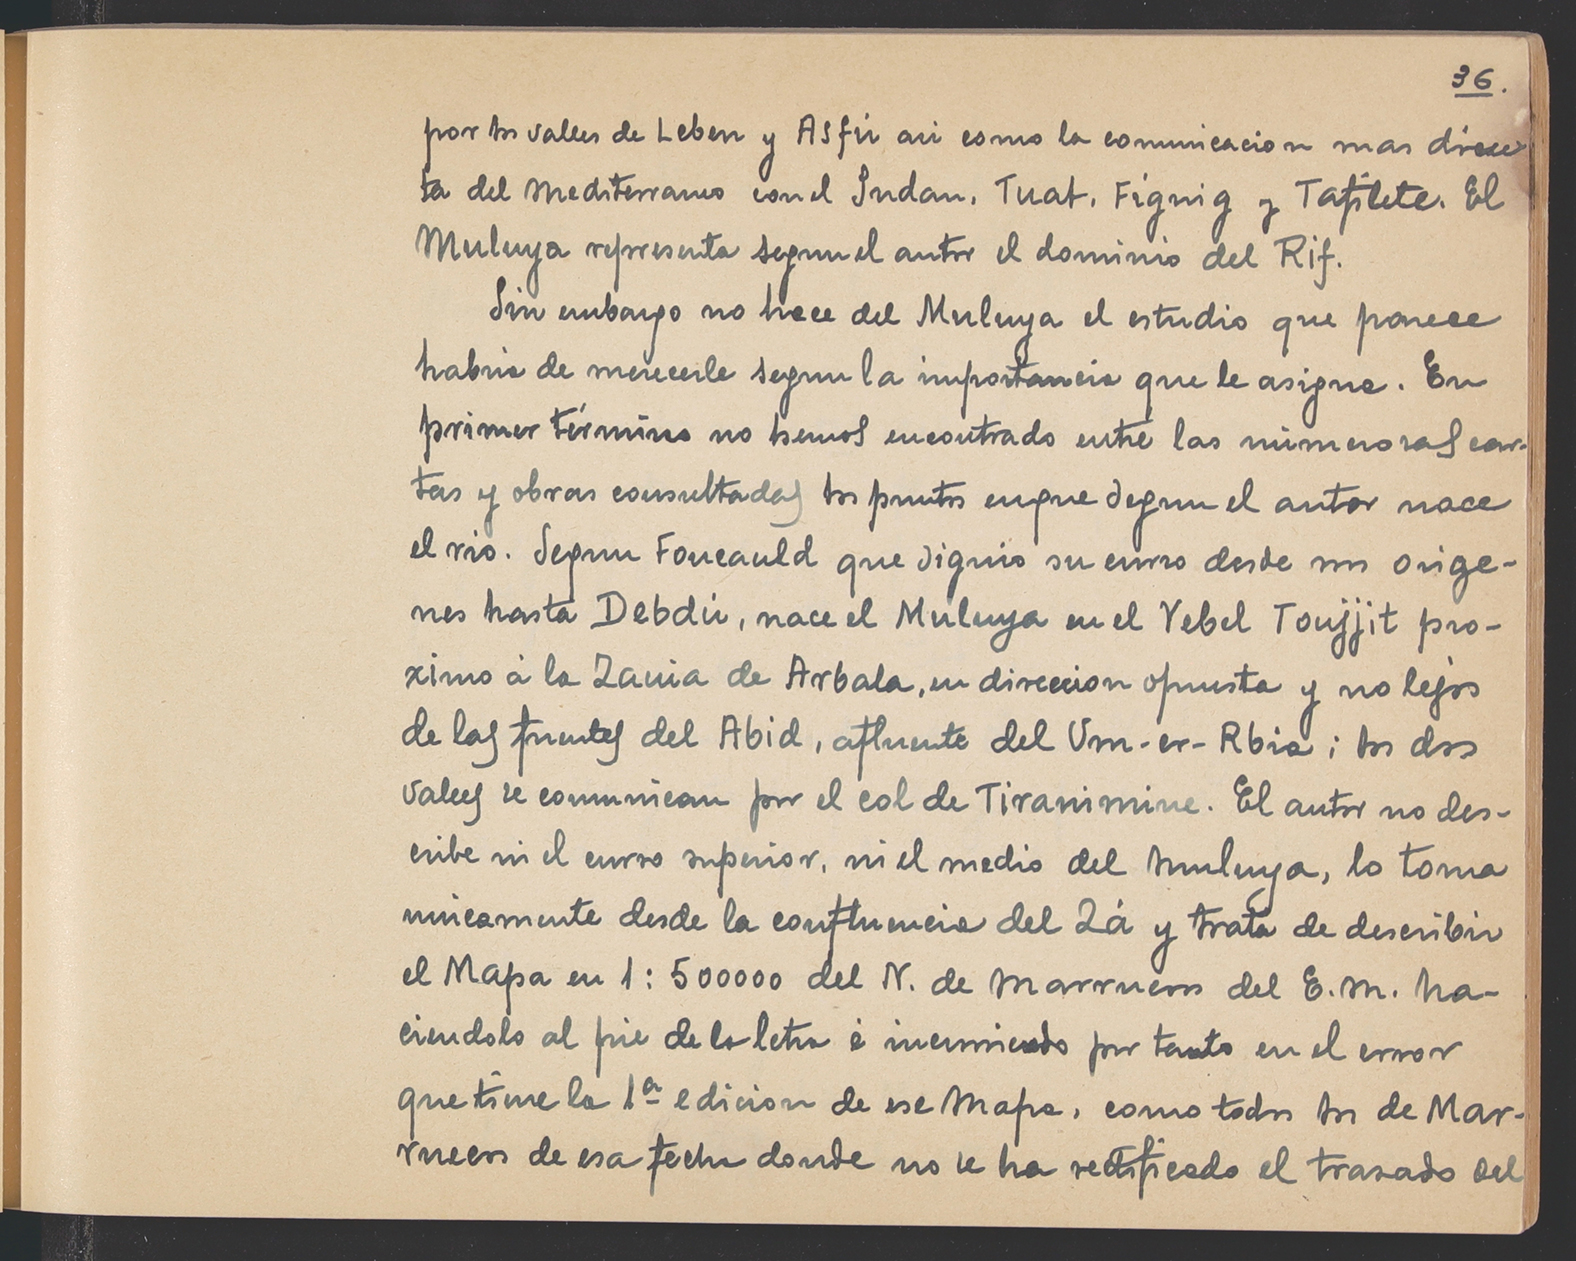 36.
por los valles de Leben y Asfú asi como la comunicacion mas direc
ta del Mediterraneo con el Sudan, Tuat, Figuig y Tafilete. El
Muluya representa segun el autor el dominio del Rif.
Sin embargo no hace del Muluya el estudio que parece
habria de merecerle segun la importancia que le asigna. En
primer término no hemos encontrado entre las numerosas car-
tas y obras consultadas los puntos en que segun el autor nace
el rio. Segun Foucauld que siguió su curso desde sus orige-
nes hasta Debdú, nace el Muluya en el Yebel Toujjit pro-
ximo á la Zauia de Arbala, en direccion opuesta y no lejos
de las fuentes del Abid, afluente del Um-er-Rbia; los dos
valles se comunican por el col de Tiranimine. El autor no des-
cribe ni el curso superior, ni el medio del Muluya, lo toma
unicamente desde la confluencia del Zá y trata de describir
el Mapa en 1:500000 del N. de Marruecos del E.M. ha-
ciendolo al pie de la letra é incurriendo por tanto en el error
que tiene la 1ª edicion de ese Mapa, como todos los de Mar-
ruecos de esa fecha donde no se ha rectificado el trazado del